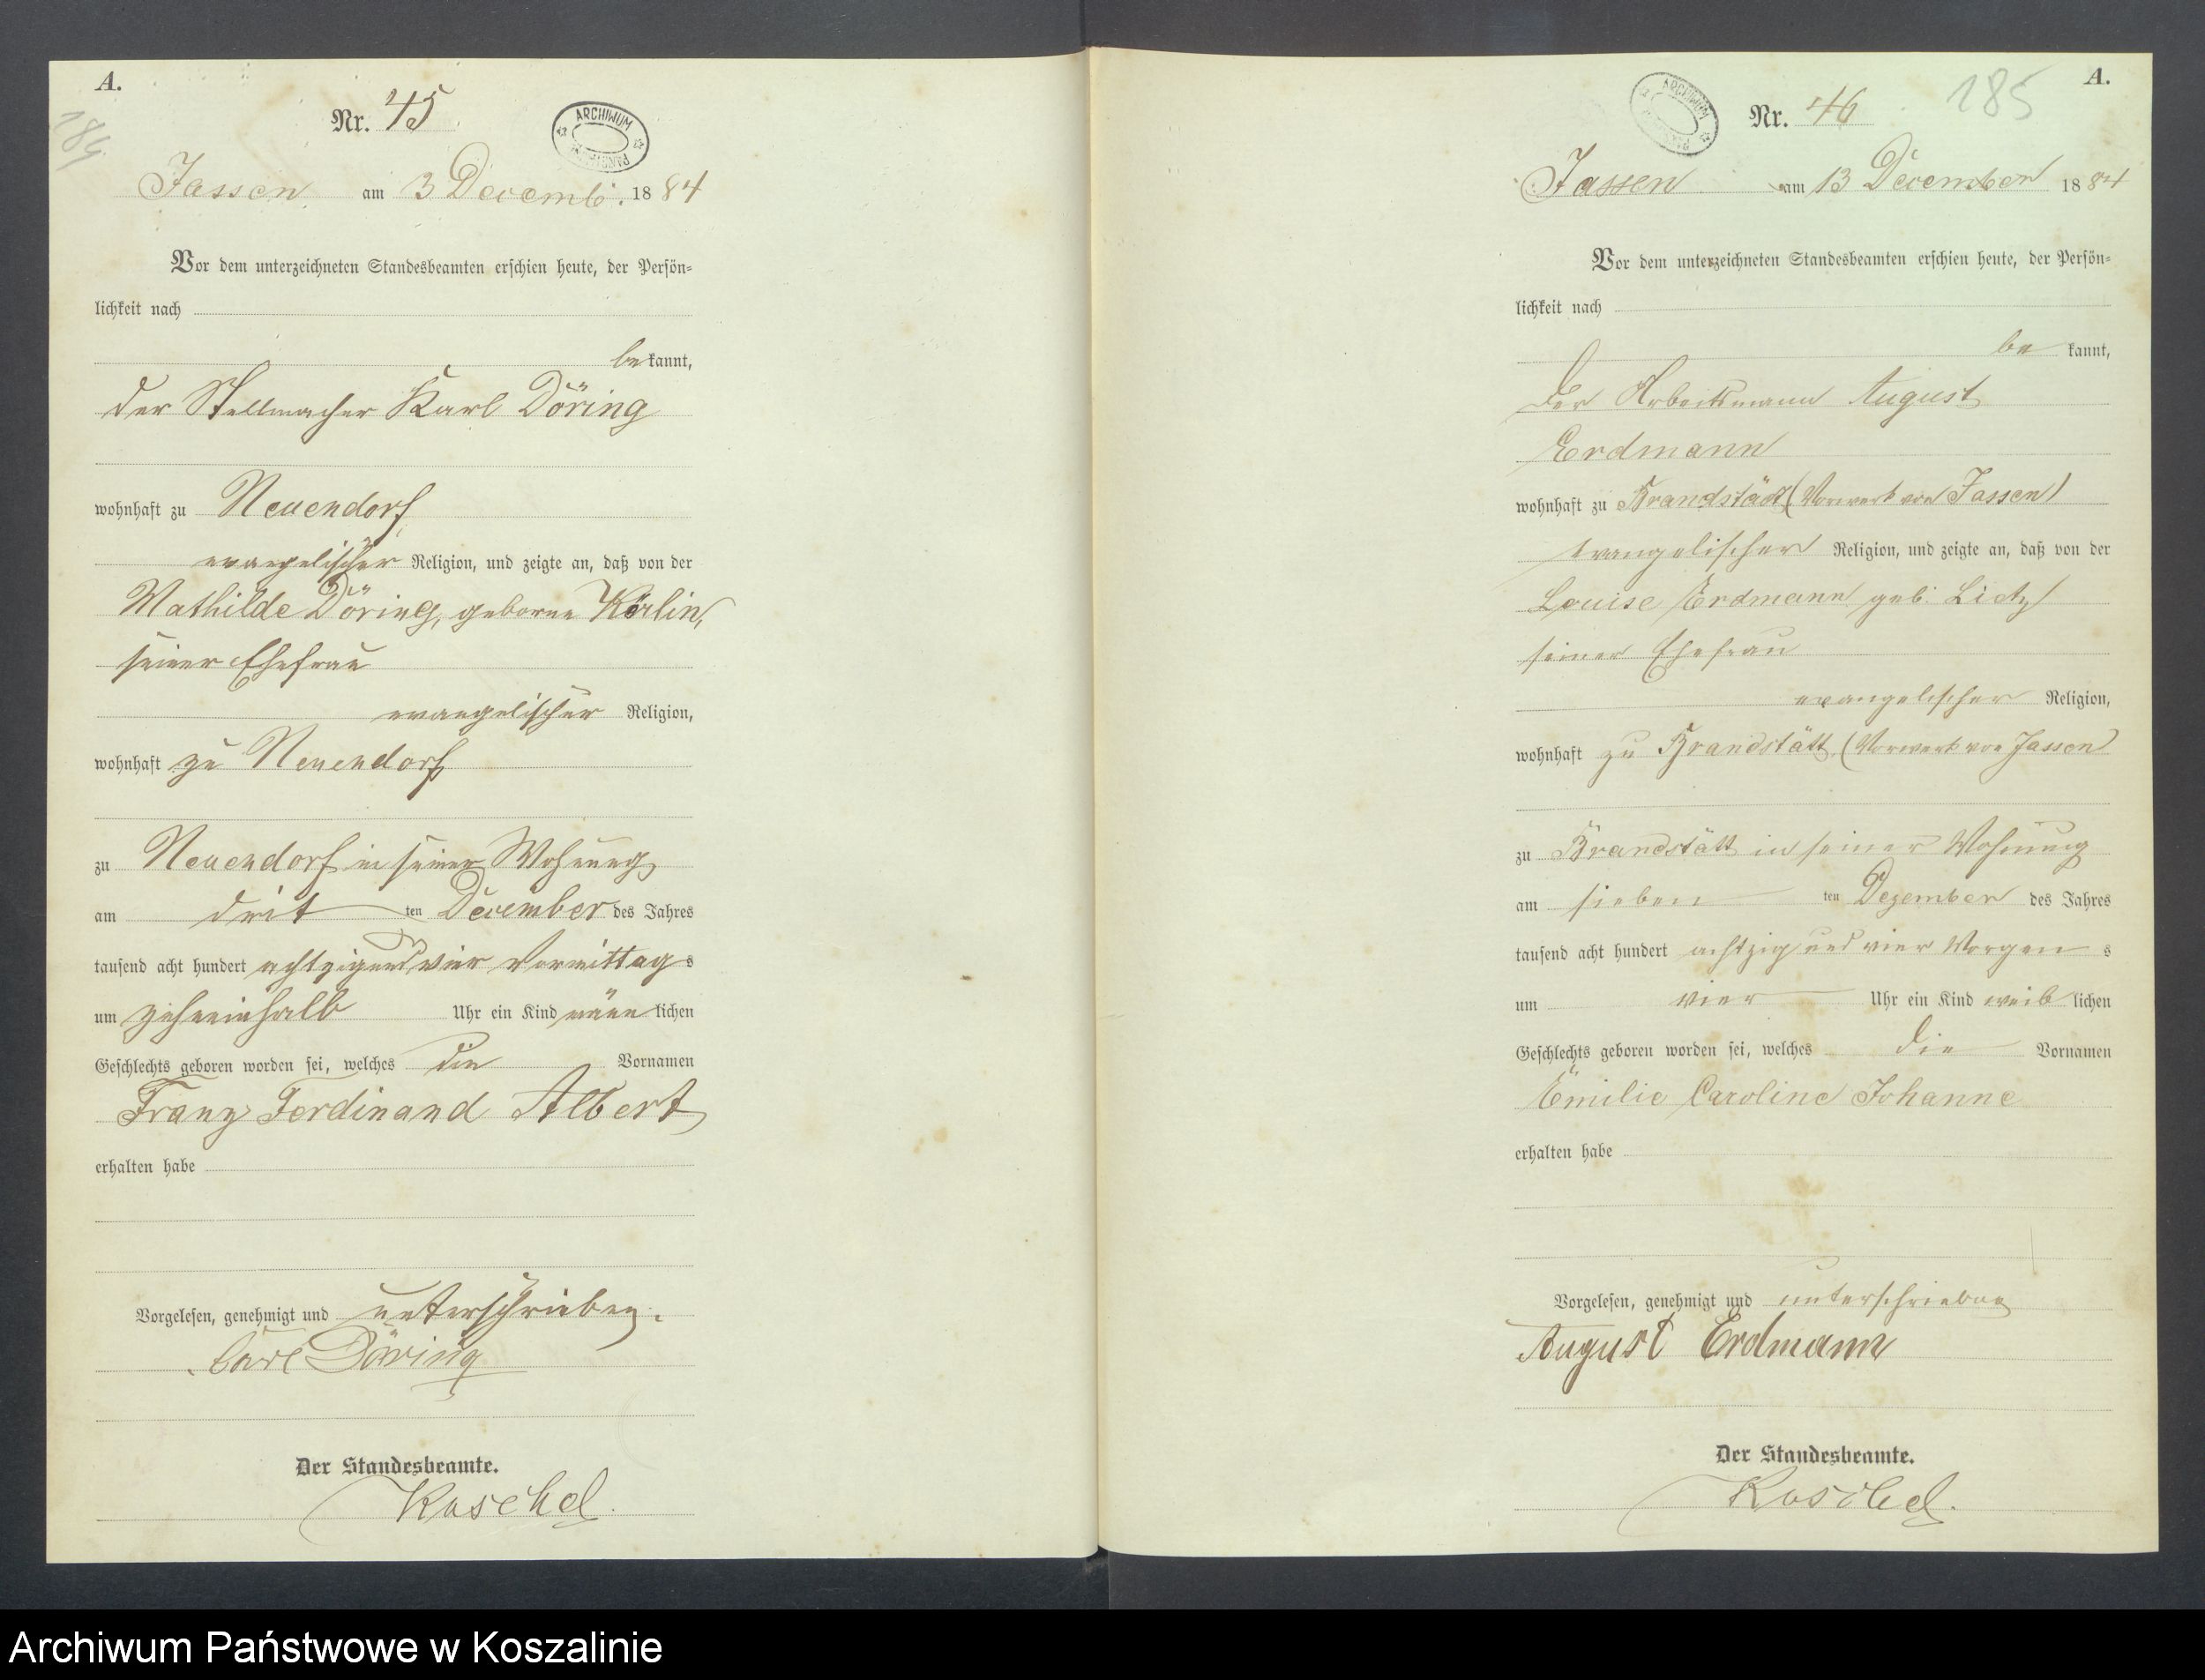 A.
184
Nr. 45
ARCHIWUM
Jassen am 3 Decemb. 1884
Vor dem unterzeichneten Standesbeamten erschien heute, der Persön-
lichkeit nach
bekannt,
der Stellmacher Karl Döring
wohnhaft zu Neuendorf
evangelischer Religion, und zeigte an, daß von der
Mathilde Döring, geborne Körlin,
seiner Ehefrau
evangelischer Religion,
wohnhaft zu Neuendorf
zu Neuendorf in seiner Wohnung
am drit ten December des Jahres
tausend acht hundert achtzig und vier Vormittags
um zehneinhalb Uhr ein Kind männlichen
Geschlechts geboren worden sei, welches die Vornamen
Franz Ferdinand Albert
erhalten habe
Vorgelesen, genehmigt und unterschrieben.
Carl Döring
Der Standesbeamte.
Koschel.
A.
185
Nr. 46
ARCHIWUM
Jassen am 13 December 1884
Vor dem unterzeichneten Standesbeamten erschien heute, der Persön-
lichkeit nach
bekannt,
Der Arbeitsmann August
Erdmann
wohnhaft zu Brandstätt (Vorwerk von Jassen)
evangelischer Religion, und zeigte an, daß von der
Louise Erdmann geb. Lietz
seiner Ehefrau
evangelischer Religion,
wohnhaft zu Brandstätt (Vorwerk von Jassen
zu Brandstätt in seiner Wohnung
am sieben ten Dezember des Jahres
tausend acht hundert achtzig und vier Morgens
um vier Uhr ein Kind weiblichen
Geschlechts geboren worden sei, welches die Vornamen
Emilie Caroline Johanne
erhalten habe
Vorgelesen, genehmigt und unterschrieben
August Erdmann
Der Standesbeamte.
Koschel.
Archiwum Państwowe w Koszalinie